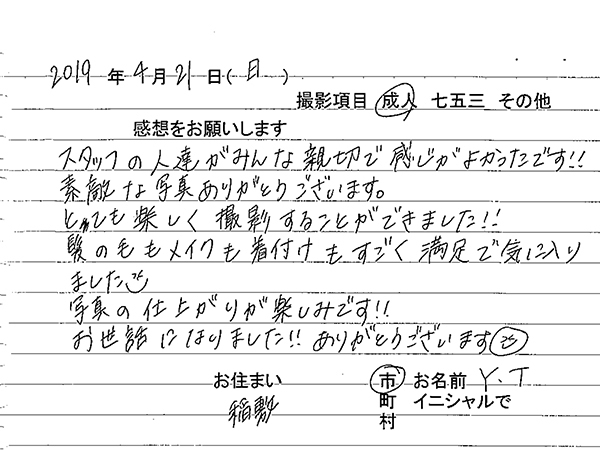 2019年4月21日(日)
撮影項目 成人 七五三 その他
感想をお願いします
スタッフの人達がみんな親切で感じがよかったです!!
素敵な写真ありがとうございます。
とっても楽しく撮影することができました!!
髪の毛もメイクも着付けもすごく満足で気に入り
ました
写真の仕上がりが楽しみです!!
お世話になりました!! ありがとうございます
お住まい 市 お名前 Y.T
稲敷 町 イニシャルで
村